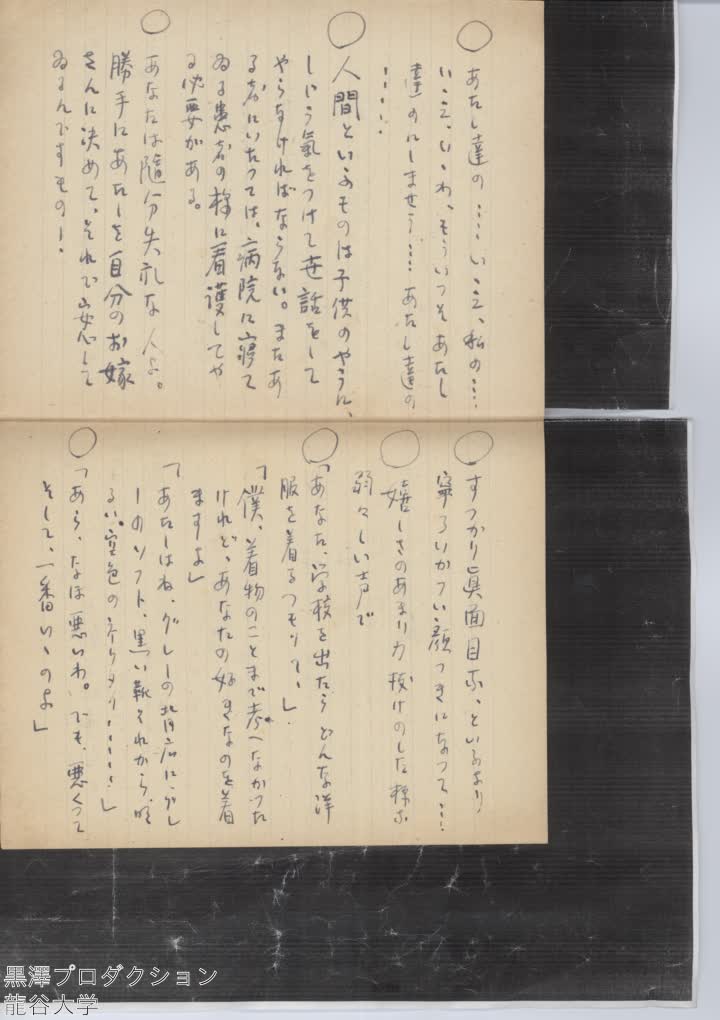 ○あたし達の‥‥いゝえ、私の‥‥
いゝえ、いゝわ、そういつそあたし
達のにしませう‥‥あたし達の
‥‥‥
○人間といふものは子供のやうに、
しじう氣をつけて世話をして
やらなければならない。またあ
る者にいたつては、病院に寝て
ゐる患者の様に看護してや
る必要がある。
○あなたは隨分失礼な人よ。
勝手にあたしを自分のお嫁
さんに決めて、それで安心して
ゐるんですもの！
○すつかり眞面目な、といふより
寧ろいかつい顔つきになつて‥‥
○嬉しさのあまり力抜けのした様な
弱々しい声で
○「あなた、学校を出たらどんな洋
服を着るつもり？」
「僕、着物のことまで考へなかつた
けれど、あなたの好きなのを着
ますよ」
「あたしはね、グレーの背広にグレ
ーのソフト、黒い靴それから、明
るい空色のネクタイ‥‥‥」
○「あら、なほ悪いわ。でも、悪くつて
そして、一番いゝのよ」
黒澤プロダクション
龍谷大学